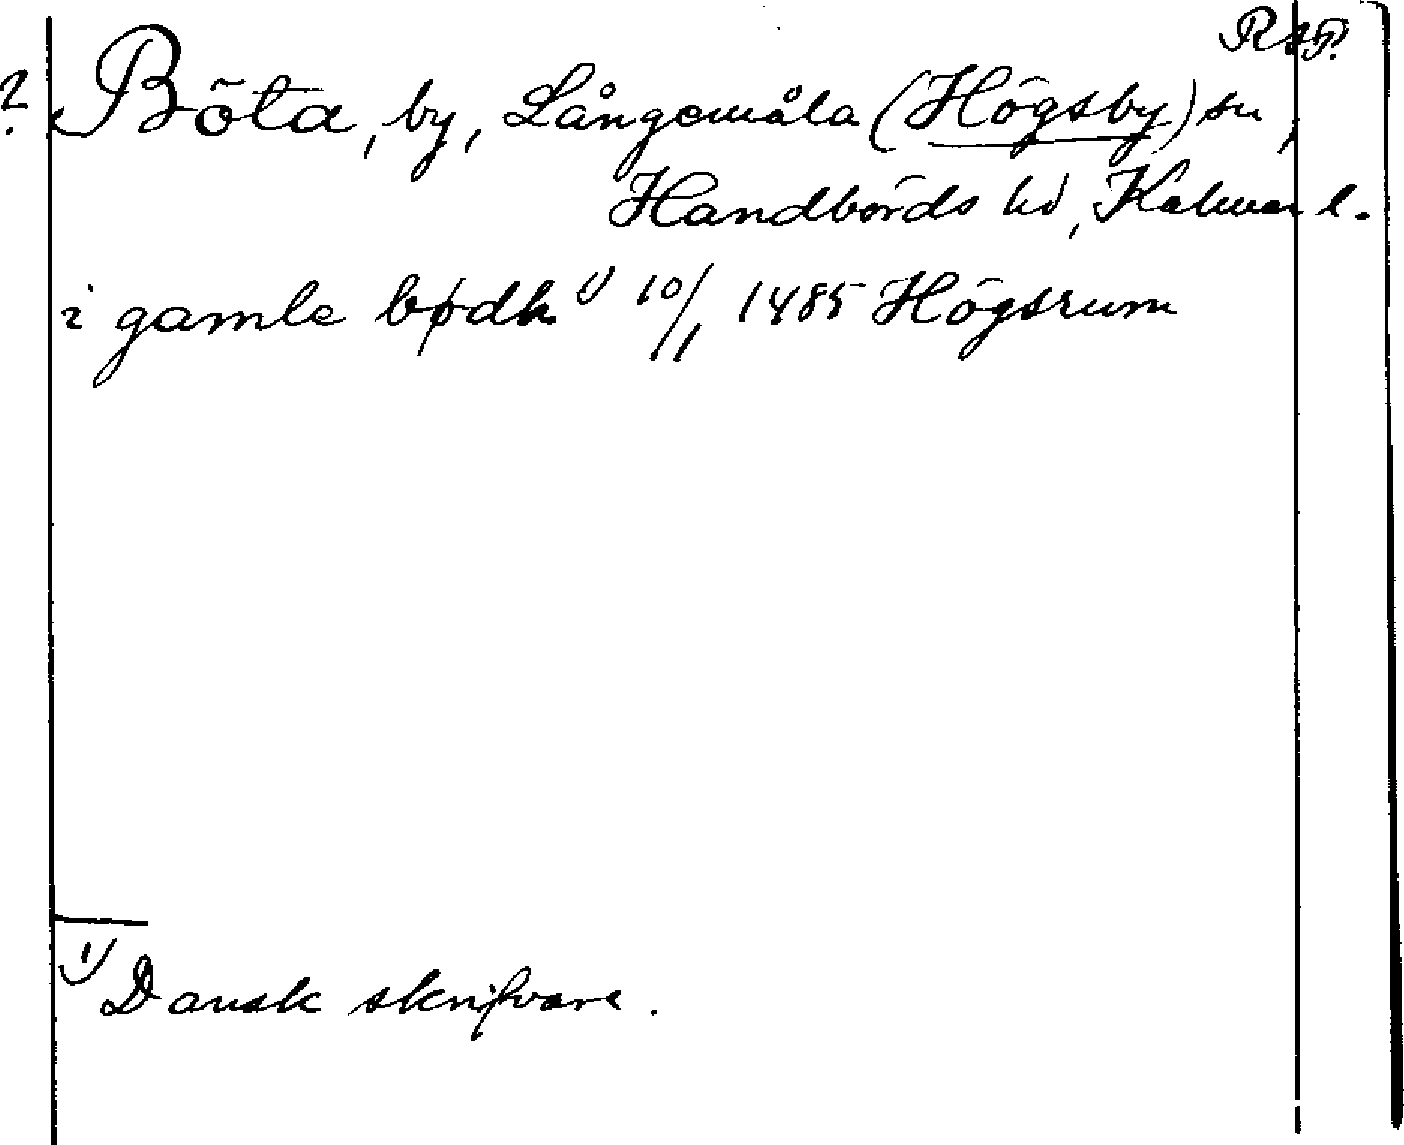 RAP.
? Böta, by, Långemåla (Högsby) sn,
Handbörds hd, Kalmar l.
i gamle bødh 1) 10/1 1485 Högsrum
1) Dansk skrifvare.